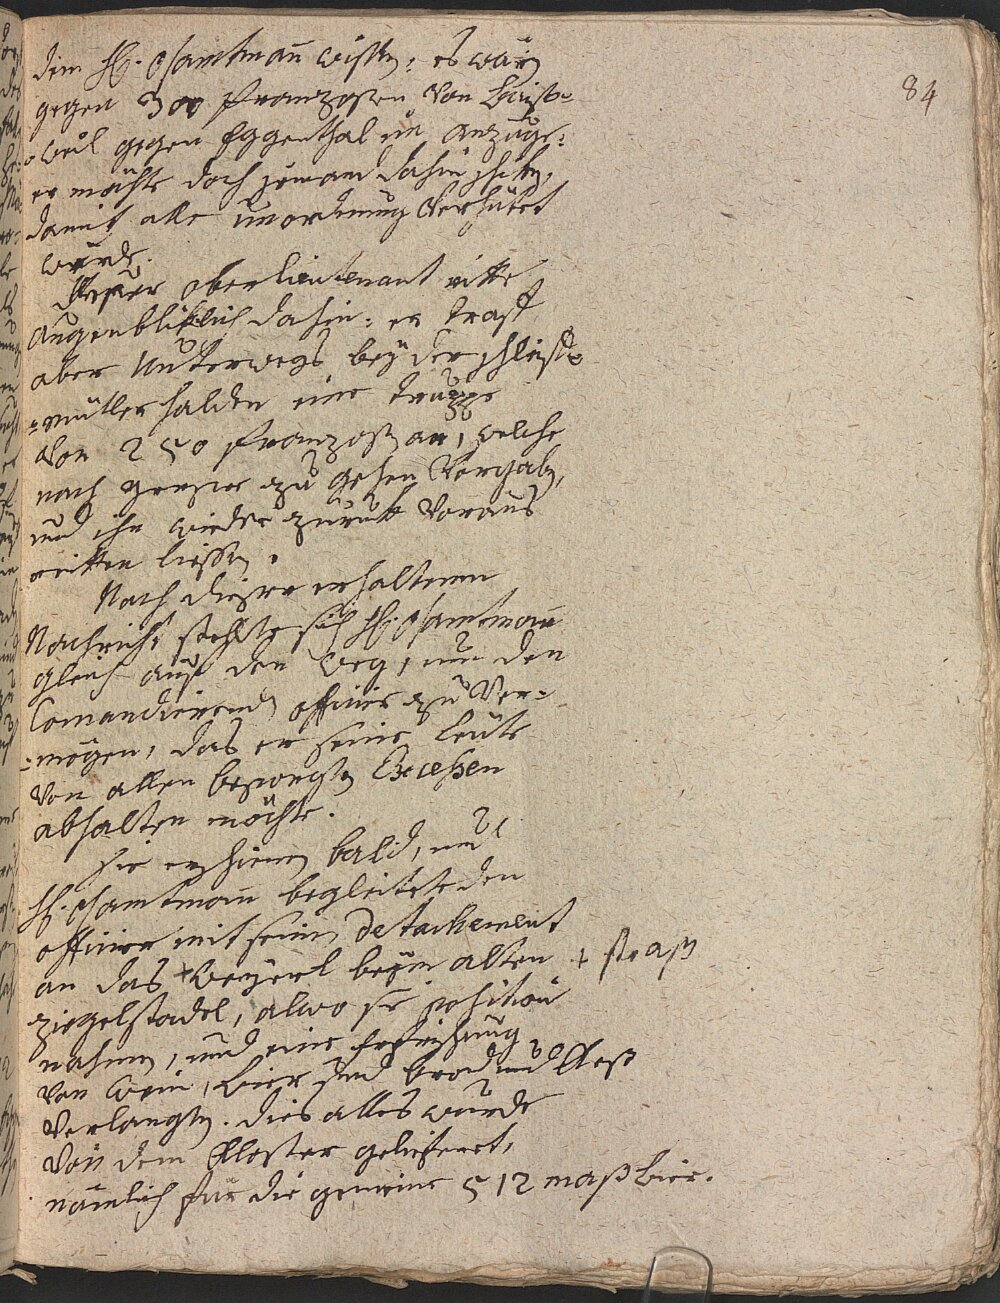 84
dem H. Oberamtmañ wissen: es wären
gegen 300 Franzosen von Baiß-
-weil gegen Eggenthal im Anzuge:
er möchte doch jemand dahin schiken,
damit alle unordnung verhütet
würde.
Dieser oberlieutenant ritte
Augenbliklich dahin: er traff
aber Unterwegs bey der
halden eine truppe
von 250 Franzosen an, welche
nach zu gehen vorgaben,
und ihn wieder zurükk voraus
reitten liessen.
Nach dieser erhaltenen
Nachricht stellte sich H. Oberamtmañ
gleich auf den weg, um den
Comandierenden officier zu ver-
-mögen, das er seine Leute
von allen besorgten Exceßen
abhalten möchte.
Sie erschienen bald, und
H. Oberamtmañ begleitete den
officier mit seinem Detachement
an das + weyerl beym alten + straß
ziegelstadel, alwo sie position
nahmen, und eine erfrischung
von Wein, bier und brod und Käß
verlangten. dies alles wurde
von dem Kloster geliefert,
nämlich für die gemeine 512 maß bier.